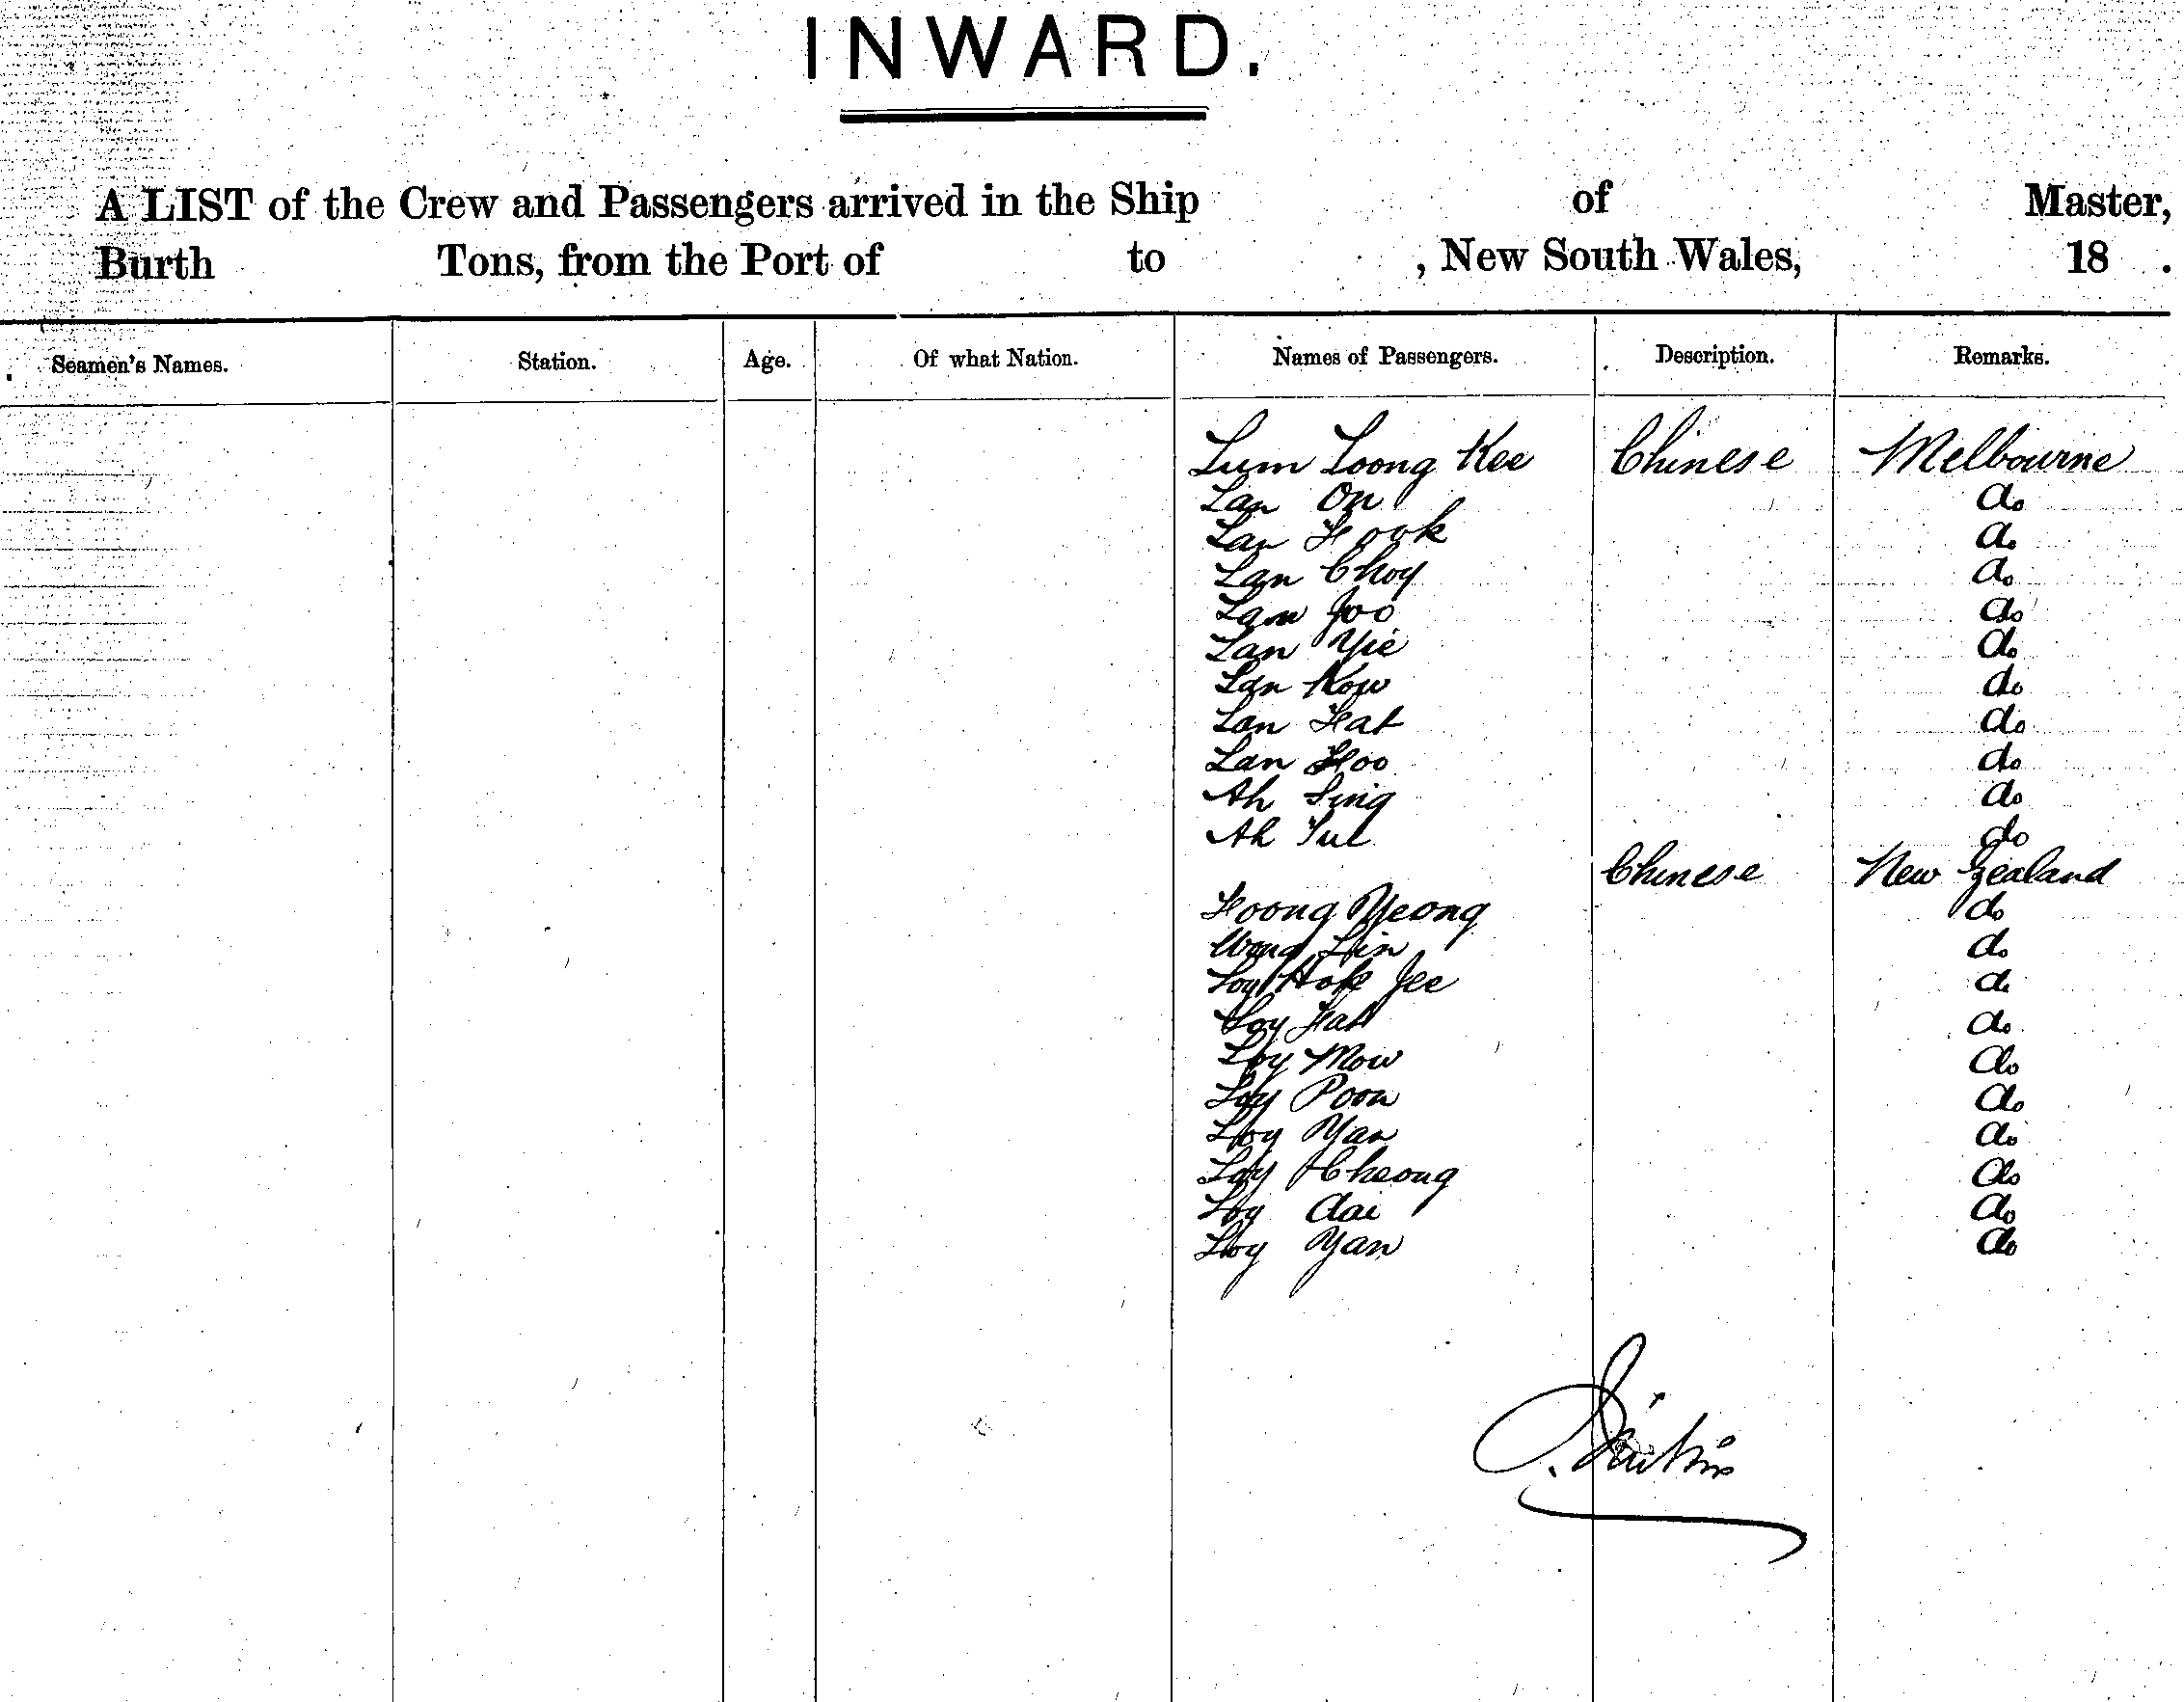 INWARD.
A LIST of the Crew and Passengers arrived in the Ship of Master,
Burth Tons, from the Port of to , New South Wales, 18 .
Seamen's Names. Station. Age. Of what Nation. Names of Passengers. Description. Remarks.
Lum Loong Kee Chinese Melbourne
Lan On do
Lan Hook do
Lan Choy do
Lan Joo do
Lan Yie do
Lan Kow do
Lan Hat do
Lan Hoo do
Ah Sing do
Ah do
Chinese New Zealand
Yeong do
Wong Lin do
Loy Hok Jee do
Loy do
Loy Mow do
Loy Poon do
Loy Yan do
Loy Cheong do
Loy do
Loy Yan do